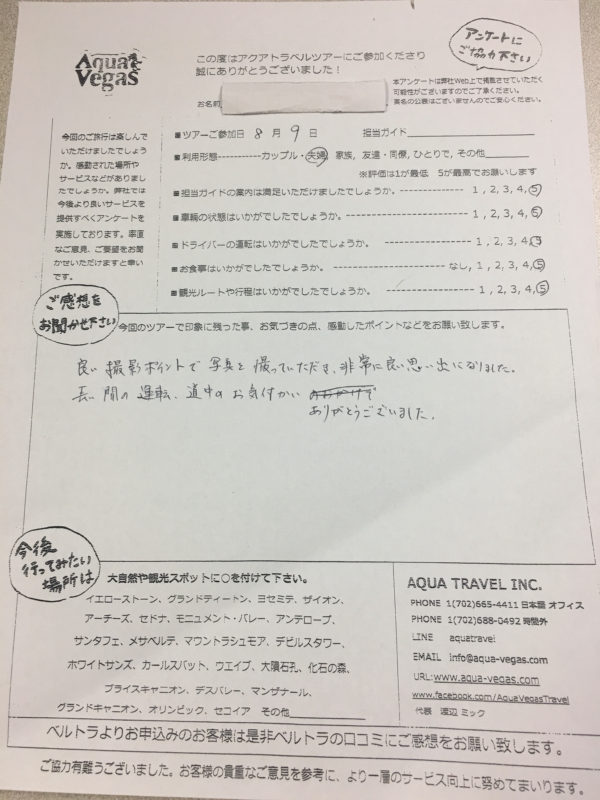 Aqua
Vegas
この度はアクアトラベルツアーにご参加くださり
誠にありがとうございました！
アンケートに
ご協力下さい
本アンケートは弊社Web上で掲載させていただく
可能性がございますのでご了承ください。
実名の公表はございませんのでご安心ください。
お名前
今回のご旅行は楽しんで
いただけましたでしょう
か。感動された場所や
サービスなどがありまし
たでしょうか。弊社では
今後より良いサービスを
提供すべくアンケートを
実施しております。率直
なご意見、ご要望をお聞
かせいただけますと幸い
です。
■ツアーご参加日 8 月 9 日 担当ガイド
■利用形態-----------カップル・夫婦, 家族, 友達・同僚, ひとりで, その他
※評価は1が最低 5が最高でお願いします
■担当ガイドの案内は満足いただけましたでしょうか。 --------------- 1, 2, 3, 4, 5
■車輌の状態はいかがでしたでしょうか。 ------------------------- 1, 2, 3, 4, 5
■ドライバーの運転はいかがでしたでしょうか。 ------------------- 1, 2, 3, 4, 5
■お食事はいかがでしたでしょうか。 ----------------------- なし, 1, 2, 3, 4, 5
■観光ルートや行程はいかがでしたでしょうか。 ------------------- 1, 2, 3, 4, 5
ご感想を
お聞かせ下さい
今回のツアーで印象に残った事、お気づきの点、感動したポイントなどをお願い致します。
良い撮影ポイントで写真を撮っていただき、非常に良い思い出になりました。
長い間の運転、道中のお気付かい
ありがとうございました。
今後
行ってみたい
場所は
大自然や観光スポットに○を付けて下さい。
イエローストーン、グランドティートン、ヨセミテ、ザイオン、
アーチーズ、セドナ、モニュメント・バレー、アンテロープ、
サンタフェ、メサベルデ、マウントラシュモア、デビルスタワー、
ホワイトサンズ、カールスバット、ウエイブ、大隕石孔、化石の森、
ブライスキャニオン、デスバレー、マンザナール、
グランドキャニオン、オリンピック、セコイア その他
AQUA TRAVEL INC.
PHONE 1(702)665-4411 日本語 オフィス
PHONE 1(702)688-0492 時間外
LINE aquatravel
EMAIL info@aqua-vegas.com
URL:www.aqua-vegas.com
www.facebook.com/AquaVegasTravel
代表 渡辺 ミック
ベルトラよりお申込みのお客様は是非ベルトラの口コミにご感想をお願い致します。
ご協力有難うございました。お客様の貴重なご意見を参考に、より一層のサービス向上に努めてまいります。